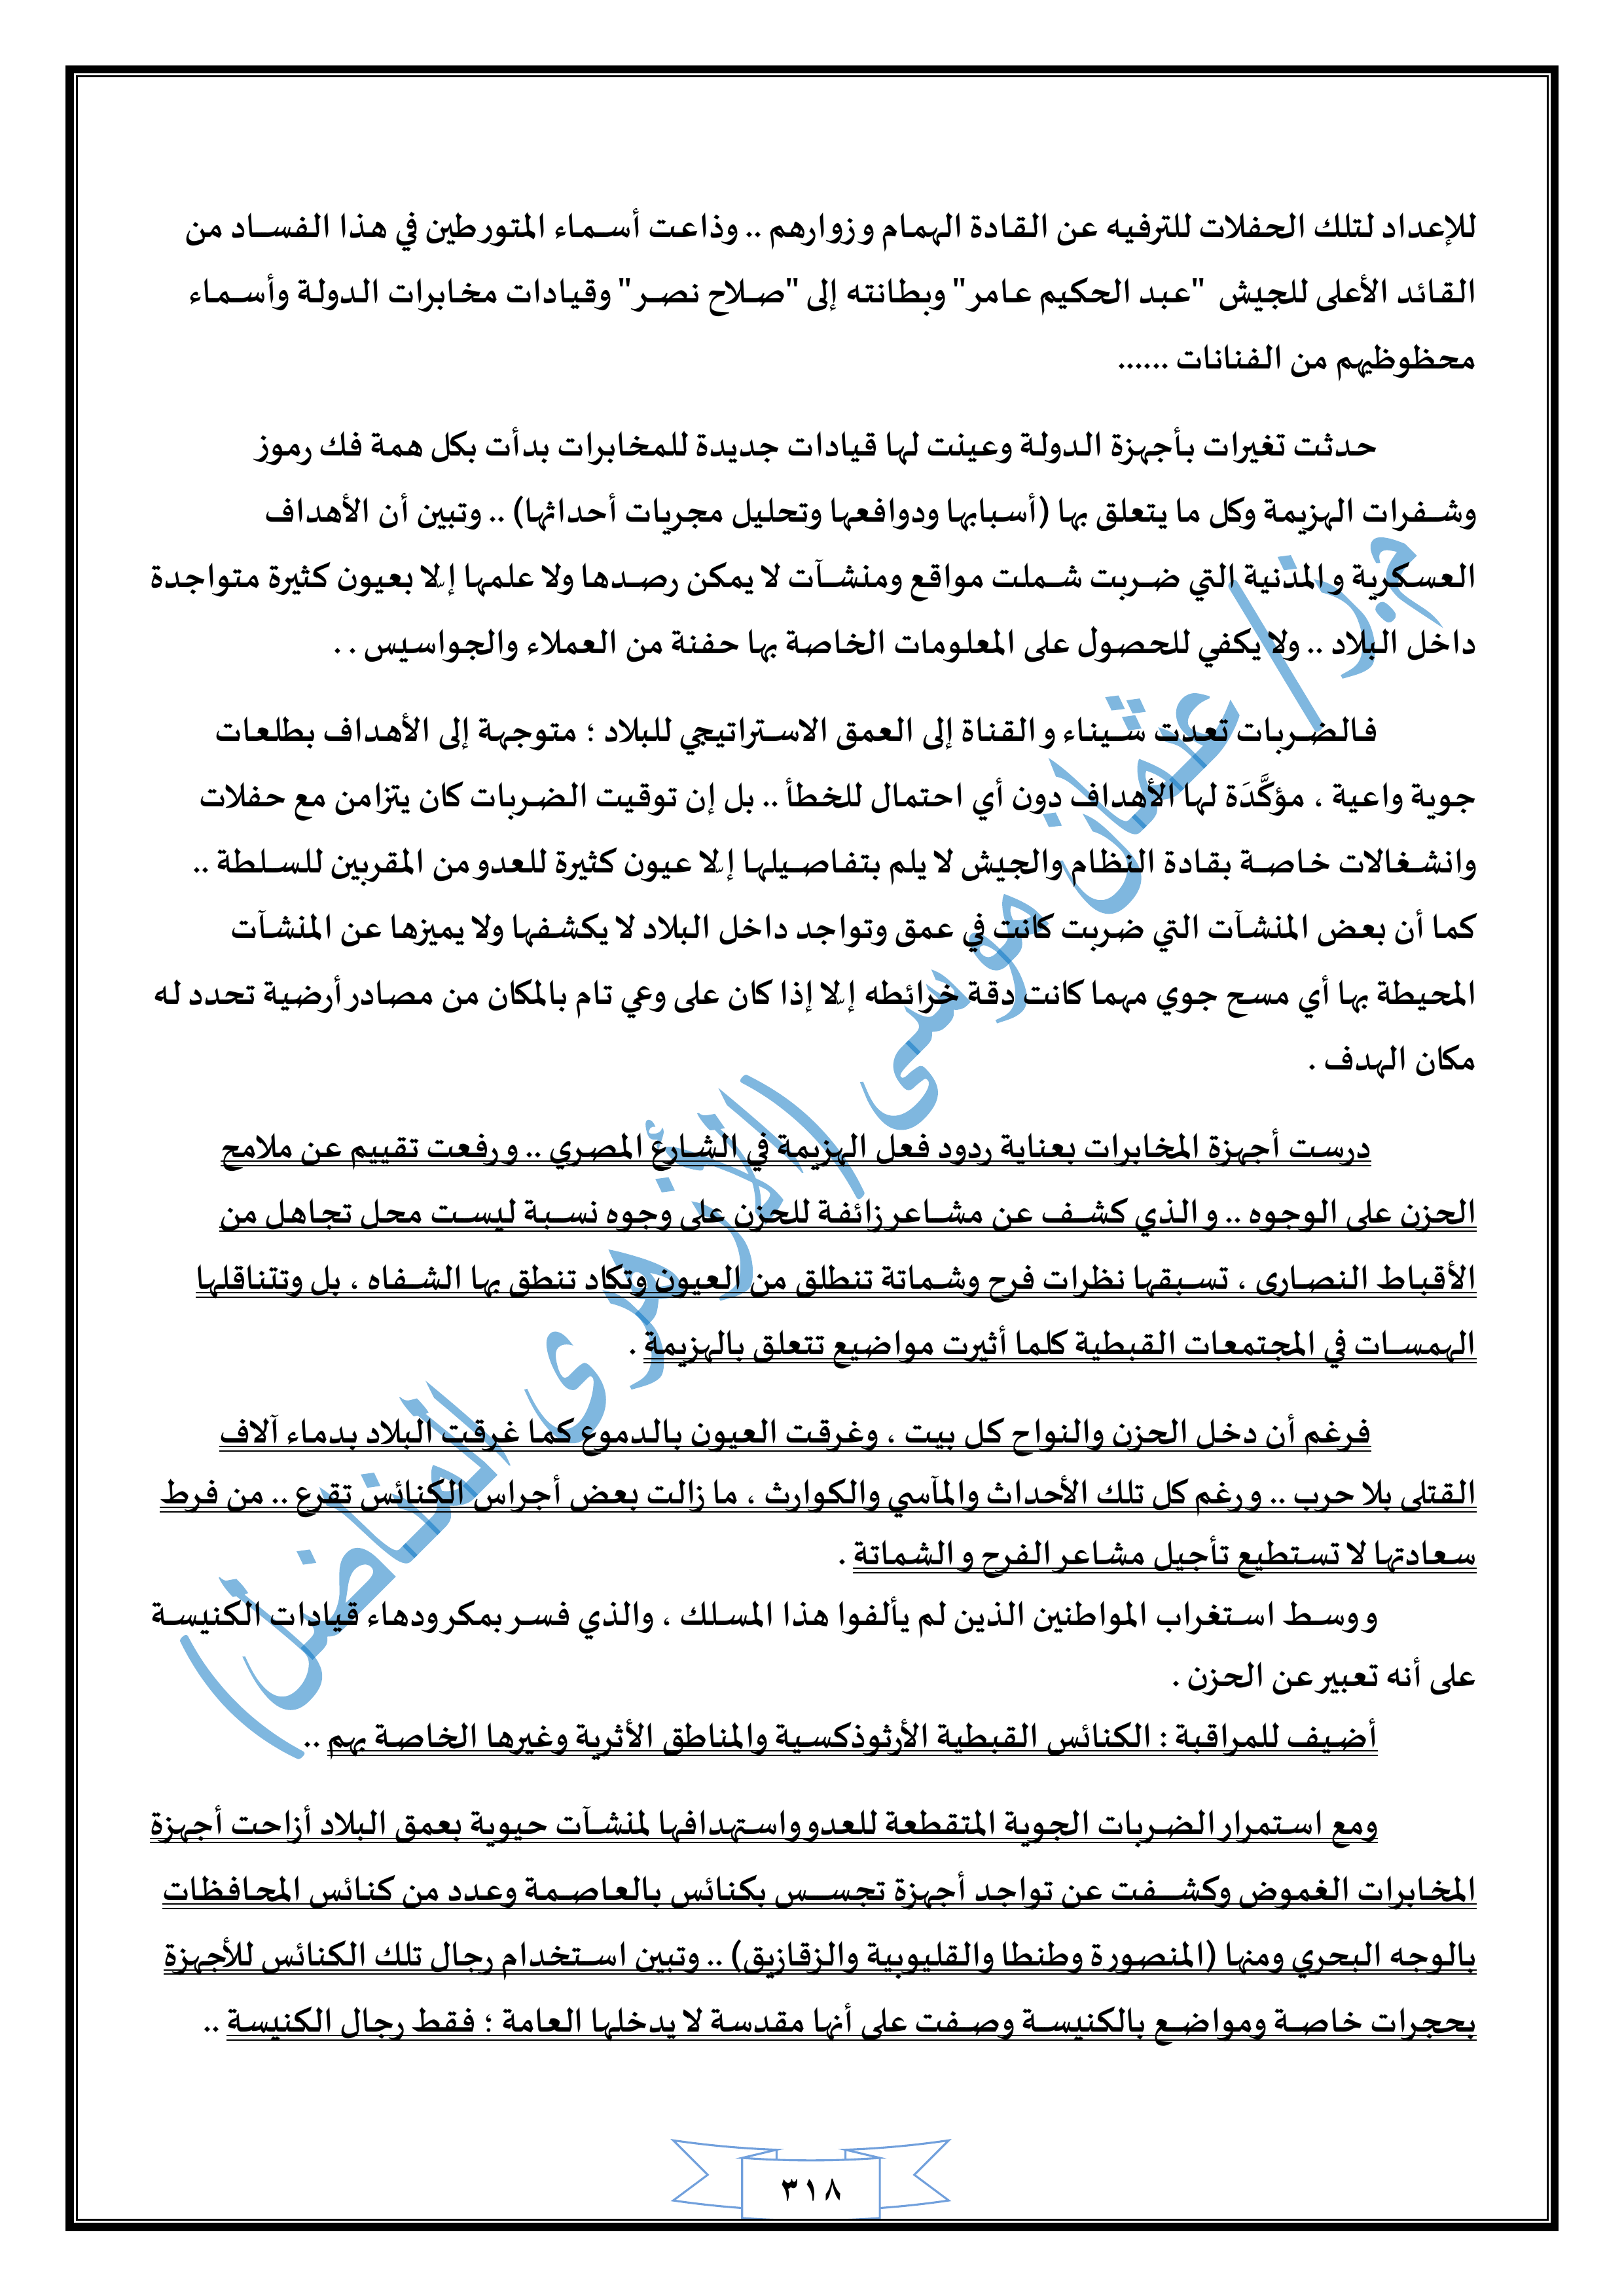 للإعداد لتلك الحفلات للترفيه عن القادة الهمام وزوارهم .. وذاعت أسماء المتورطين في هذا الفساد من
القائد الأعلى للجيش "عبد الحكيم عامر" وبطانته إلى "صلاح نصر" وقيادات مخابرات الدولة وأسماء
محظوظيهم من الفنانات ......
حدثت تغيرات بأجهزة الدولة وعينت لها قيادات جديدة للمخابرات بدأت بكل همة فك رموز
وشفرات الهزيمة وكل ما يتعلق بها (أسبابها ودوافعها وتحليل مجريات أحداثها) .. وتبين أن الأهداف
العسكرية والمدنية التي ضربت شملت مواقع ومنشآت لا يمكن رصدها ولا علمها إلا بعيون كثيرة متواجدة
داخل البلاد .. ولا يكفي للحصول على المعلومات الخاصة بها حفنة من العملاء والجواسيس . .
فالضربات تعدت سيناء والقناة إلى العمق الاستراتيجي للبلاد ؛ متوجهة إلى الأهداف بطلعات
جوية واعية ، مؤكَّدَة لها الأهداف دون أي احتمال للخطأ .. بل إن توقيت الضربات كان يتزامن مع حفلات
وانشغالات خاصة بقادة النظام والجيش لا يلم بتفاصيلها إلا عيون كثيرة للعدو من المقربين للسلطة ..
كما أن بعض المنشآت التي ضربت كانت في عمق وتواجد داخل البلاد لا يكشفها ولا يميزها عن المنشآت
المحيطة بها أي مسح جوي مهما كانت دقة خرائطه إلا إذا كان على وعي تام بالمكان من مصادر أرضية تحدد له
مكان الهدف .
درست أجهزة المخابرات بعناية ردود فعل الهزيمة في الشارع المصري .. ورفعت تقييم عن ملامح
الحزن على الوجوه .. والذي كشف عن مشاعر زائفة للحزن على وجوه نسبة ليست محل تجاهل من
الأقباط النصارى ، تسبقها نظرات فرح وشماتة تنطلق من العيون وتكاد تنطق بها الشفاه ، بل وتتناقلها
الهمسات في المجتمعات القبطية كلما أثيرت مواضيع تتعلق بالهزيمة .
فرغم أن دخل الحزن والنواح كل بيت ، وغرقت العيون بالدموع كما غرقت البلاد بدماء آلاف
القتلى بلا حرب .. ورغم كل تلك الأحداث والمآسي والكوارث ، ما زالت بعض أجراس الكنائس تقرع .. من فرط
سعادتها لا تستطيع تأجيل مشاعر الفرح والشماتة .
ووسط استغراب المواطنين الذين لم يألفوا هذا المسلك ، والذي فسر بمكر ودهاء قيادات الكنيسة
على أنه تعبير عن الحزن .
أضيف للمراقبة : الكنائس القبطية الأرثوذكسية والمناطق الأثرية وغيرها الخاصة بهم ..
ومع استمرار الضربات الجوية المتقطعة للعدو واستهدافها لمنشآت حيوية بعمق البلاد أزاحت أجهزة
المخابرات الغموض وكشفت عن تواجد أجهزة تجسس بكنائس بالعاصمة وعدد من كنائس المحافظات
بالوجه البحري ومنها (المنصورة وطنطا والقليوبية والزقازيق) .. وتبين استخدام رجال تلك الكنائس للأجهزة
بحجرات خاصة ومواضع بالكنيسة وصفت على أنها مقدسة لا يدخلها العامة ؛ فقط رجال الكنيسة ..
٣١٨
عثمان موسى (الأزهرى المناضل)